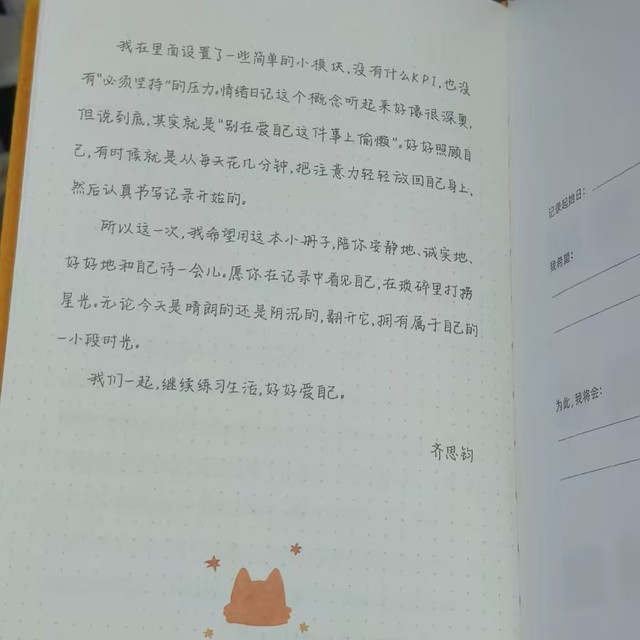 我在里面设置了一些简单的小模块,没有什么KPI,也没
有“必须坚持”的压力。情绪日记这个概念听起来好像很深奥,
但说到底,其实就是“别在爱自己这件事上偷懒”。好好照顾自
己,有时候就是从每天花几分钟,把注意力轻轻放回自己身上,
然后认真书写记录开始的。
所以这一次,我希望用这本小册子,陪你安静地、诚实地、
好好地和自己待一会儿。愿你在记录中看见自己,在琐碎里打捞
星光。无论今天是晴朗的还是阴沉的,翻开它,拥有属于自己的
一小段时光。
我们一起,继续练习生活,好好爱自己。
齐思钧
记录起始日:
我希望:
为此,我将会: